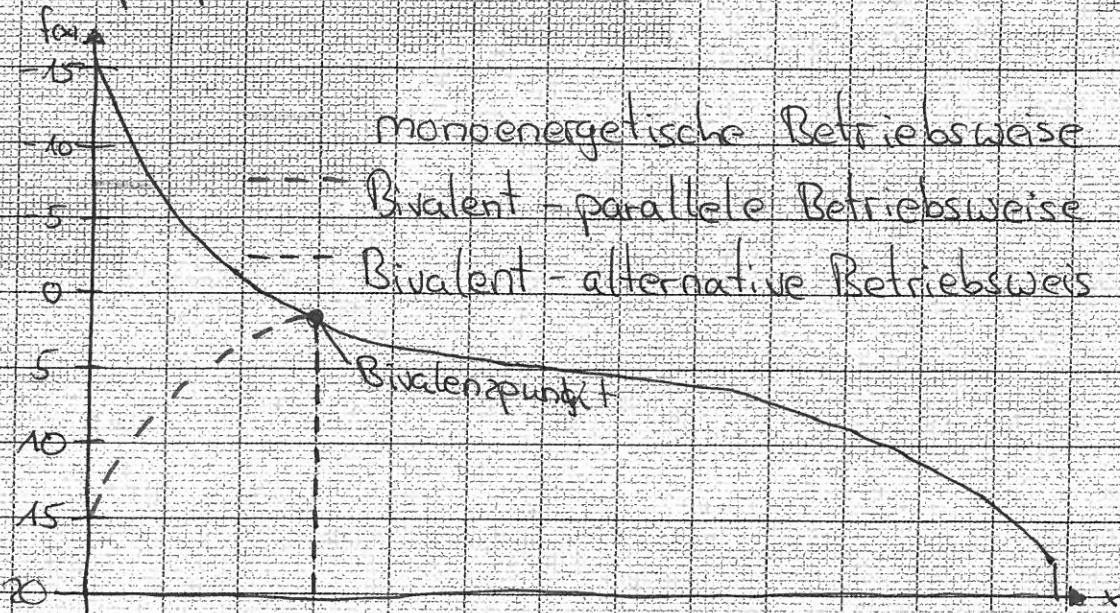 f(x)
-15
-10
monoenergetische Betriebsweise
Bivalent - parallele Betriebsweise
-5
Bivalent - alternative Betriebsweis
0
5
Bivalenzpunkt
10
15
20